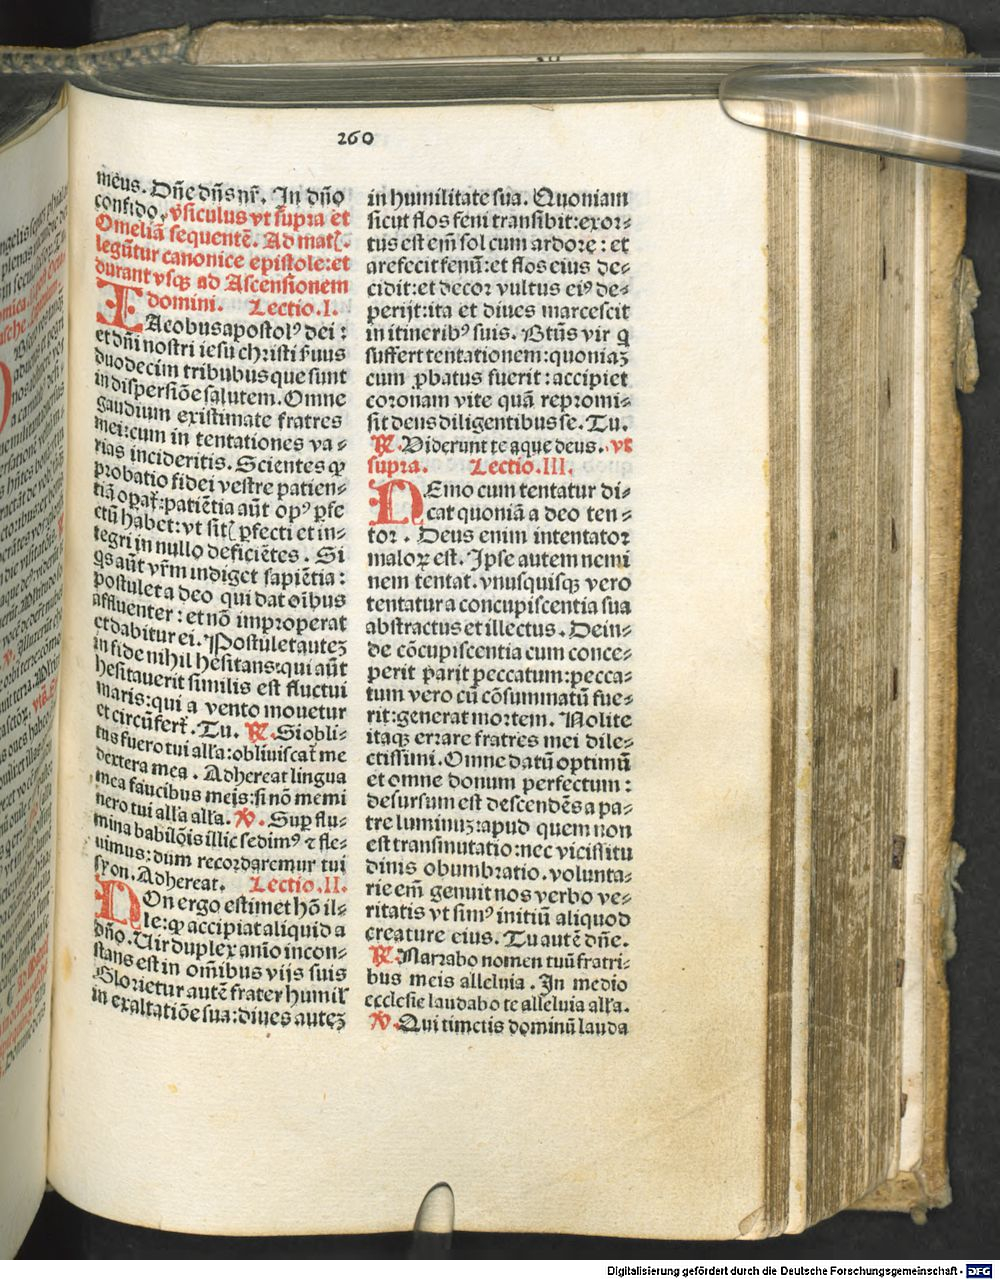 260
meus. Dñe dñs nr̃. In dño
confido. v̾siculus vt supra et
Omeliã sequentẽ. Ad matꝭ.
legũtur canonice epistole: et
durant vsqꝫ ad Ascensionem
domini. Lectio. I.
IAcobus apostolꝰ dei:
et dñi nostri iesu christi suus
duodecim tribubus que sunt
in dispersiõe salutem. Omne
gaudium existimate fratres
mei: cum in tentationes va⸗
rias incideritis. Scientes ꝙ
probatio fidei vestre patien⸗
tiã opat̃: patiẽtia aũt opꝰ ꝑfe
ctũ habet: vt sitꝭ ꝑfecti et in⸗
tegri in nullo deficiẽtes. Si
qs aũt vr̃m indiget sapiẽtia:
postulet a deo qui dat oĩbus
affluenter: et nõ improperat
et dabitur ei. Postulet auteꝫ
in fide nihil hesitans: qui aũt
hesitauerit similis est fluctui
maris: qui a vento mouetur
et circũfert̃. Tu. ℟. Si obli⸗
tus fuero tui alľa: obliuiscat̃ me
dextera mea. Adhereat lingua
mea faucibus meis: si nõ memi
nero tui alľa alľa. ℣. Suꝑ flu⸗
mina babilõis illic sedimꝰ ⁊ fle⸗
uimus: dum recordaremur tui
syon. Adhereat. Lectio. II.
NOn ergo estimet hõ il⸗
le: ꝙ accipiat aliquid a
dño. Uir duplex anio incon⸗
stans est in om̃ibus vijs suis
Glorietur autẽ frater humiľ
in exaltatiõe sua: diues auteꝫ
in humilitate sua. Quoniam
sicut flos feni transibit: exor⸗
tus est em̃ sol cum ardore: et
arefecit fenũ: et flos eius de⸗
cidit: et decor vultus eiꝰ de⸗
perijt: ita et diues marcescit
in itineribꝰ suis. Btũs vir q
suffert tentationem: quoniaꝫ
cum ꝓbatus fuerit: accipiet
coronam vite quã repromi⸗
sit deus diligentibus se. Tu.
℟. Viderunt te aque deus. vt
supra. Lectio. III.
NEmo cum tentatur di⸗
cat quoniã a deo ten⸗
tor. Deus enim intentator
maloꝝ est. Ipse autem nemi
nem tentat. vnusquisqꝫ vero
tentatur a concupiscentia sua
abstractus et illectus. Dein⸗
de cõcupiscentia cum conce⸗
perit parit peccatum: pecca⸗
tum vero cũ cõsummatũ fue⸗
rit: generat mortem. Nolite
itaqꝫ errare fratres mei dile⸗
ctissimi. Omne datũ optimũ
et omne donum perfectum:
desursum est descendẽs a pa⸗
tre luminuꝫ: apud quem non
est transmutatio: nec vicissitu
dinis obumbratio. volunta⸗
rie em̃ genuit nos verbo ve⸗
ritatis vt simꝰ initiũ aliquod
creature eius. Tu autẽ dñe.
℟. Narrabo nomen tuũ fratri⸗
bus meis alleluia. In medio
ecclesie laudabo te alleluia alľa.
℣. Qui timetis dominũ lauda
Digitalisierung gefördert durch die Deutsche Forschungsgemeinschaft - DFG